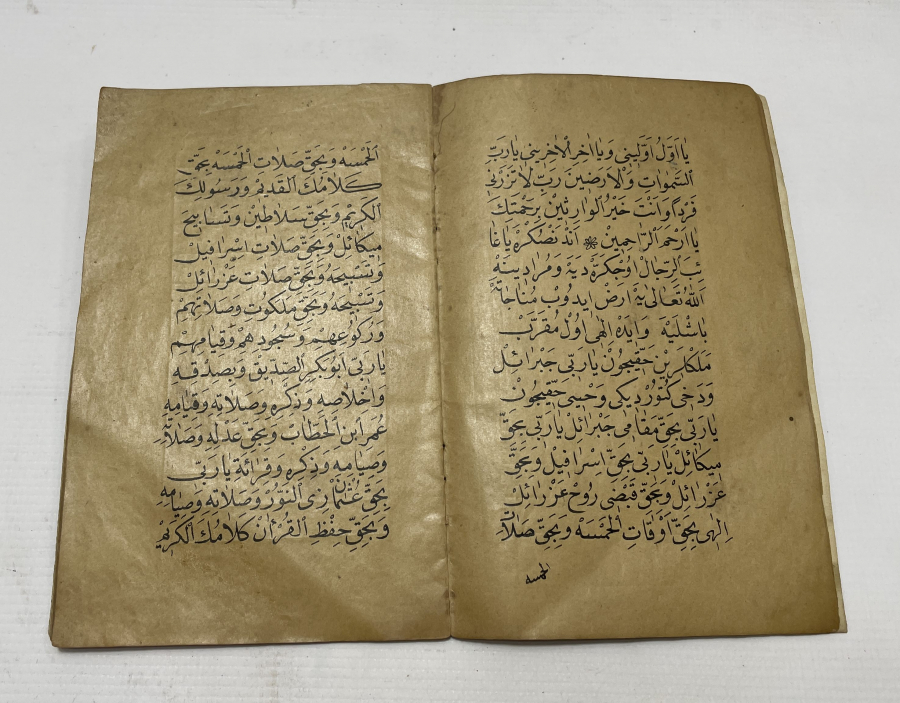 يَا اَوَّلَ اَوَّلِينِ وَيَا اٰخِرَ الْاٰخِرِينِ يَارَبَّ
السَّمٰوَاتِ وَالْاَرَضِينَ رَبِّ لَاتَذَرْنِى
فَرْدًا وَاَنْتَ خَيْرُ الْوَارِثِيْنَ بِرَحْمَتِكَ
يَا اَرْحَمَ الرَّاحِمِيْنَ اَنْدَنْصُكْرَهْ يَاغَا
ئِبَ الرِّجَالْ اُوجْكَرَّهْ دِيَهْ وَمُرَادِينَهْ
اَللّٰهُ تَعَالٰى يَهْ اَرْضْ اِيدُوبْ مُنَاجَاتَهْ
بَاشْلَيَهْ وَاِيدَهْ اِلٰهِى اُولْ مُقَرَّبْ
مَلَكْلَرِيْنْ حَقِّيچُونْ يَارَبِّى جَبْرَائِلْ
وَدَخِى كَتُورْدِيكِى وَحْيِى حَقِّيچُونْ
يَارَبِّى بِحَقِّ مَقَامِى جَبْرَائِلْ يَارَبِّى بِحَقِّ
مِيكَائِلْ يَارَبِّى بِحَقِّ اِسْرَافِيلْ وَبِحَقِّ
عَزْرَائِلْ وَبِحَقِّ قَبْضِى رُوحْ عَزْرَائِلْ
اِلٰهِى بِحَقِّ اَوْقَاتِ الْخَمْسَهْ وَبِحَقِّ صَلَاتِ
الخمسه
الْخَمْسَهْ وَبِحَقِّ صَلَاتِ الْخَمْسَهْ بِحَقِّ
كَلَامُكَ الْقَدِيْمِ وَرَسُولِكَ
الْكَرِيْمِ وَبِحَقِّ سَلَاطِيْنَ وَتَسَابِيحَ
مِيكَائِلْ وَبِحَقِّ صَلَاتِ اِسْرَافِيلْ
وَتَسْبِيحُهُ وَبِحَقِّ صَلَاتِ عَزْرَائِلْ
وَتَسْبِيحُهُ وَبِحَقِّ مَلَكُوتْ وَصَلَاتِهِمْ
وَرُكُوعِهِمْ وَسُجُودِهِمْ وَقِيَامِهِمْ
يَارَبِّى اَبُوبَكْرِ الصِّدِّيْقْ وَبِصِدْقِهِ
وَاِخْلَاصِهِ وَذِكْرِهِ وَصَلَاتِهِ وَقِيَامِهِ
عُمَرِ ابْنِ الْخَطَّابْ وَبِحَقِّ عَدْلِهِ وَصَلَاتِهِ
وَصِيَامِهِ وَذِكْرِهِ وَقِرَائَةِ يَارَبِّى
بِحَقِّ عُثْمَانْ زِى النُّوْرْ وَصَلَاتِهِ وَصِيَامِهِ
وَبِحَقِّ حِفْظِ الْقُرْاٰنْ كَلَامُكَ الْكَرِيْمْ